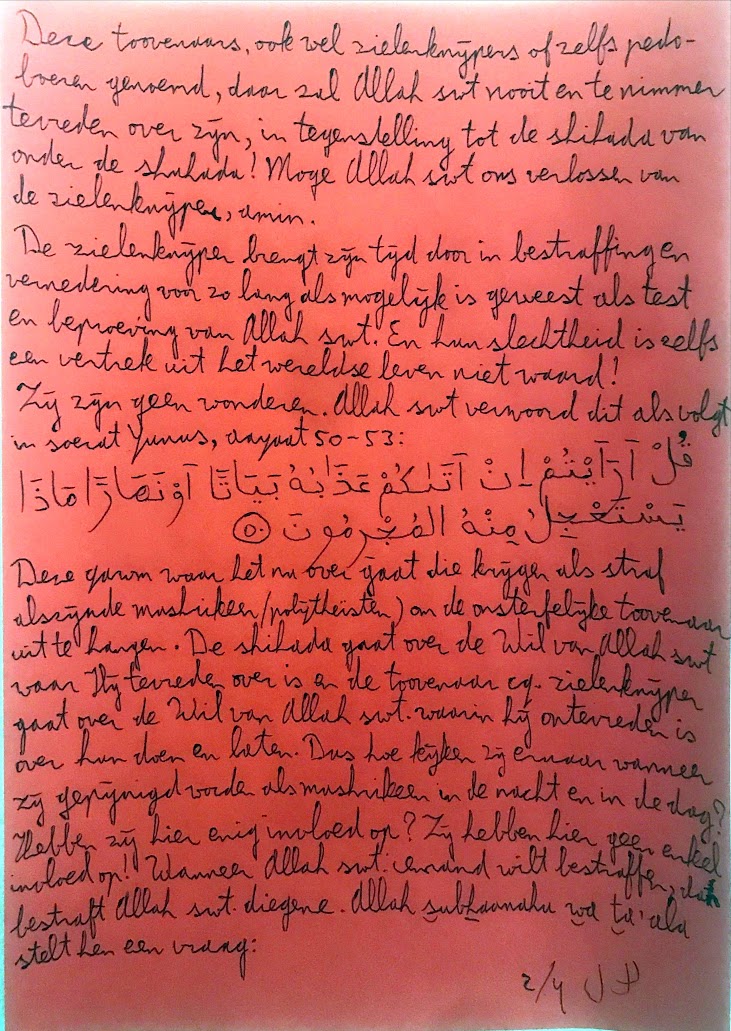 Deze toovenaars, ook wel zielenknijpers of zelfs pedo-
boeren genoemd, daar zal Allah swt nooit en te nimmer
tevreden over zijn, in tegenstelling tot de shihada van
onder de shuhada! Moge Allah swt ons verlossen van
de zielenknijper, amin.
De zielenknijper brengt zijn tijd door in bestraffing en
vernedering voor zo lang als mogelijk is geweest als test
en beproeving van Allah swt. En hun slechtheid is zelfs
een vertrek uit het wereldse leven niet waard!
Zij zijn geen wonderen. Allah swt verwoord dit als volgt
in soerat Yunus, aayaat 50-53:
قُلْ أَرَأَيْتُمْ إِنْ أَتَىٰكُمْ عَذَابُهُ بَيَاتًا أَوْ نَهَارًا مَاذَا
يَسْتَعْجِلُ مِنْهُ المُجْرِمُونَ ٥٠
Deze qawm waar het nu over gaat die krijgen als straf
alszijnde mushrikeen/polytheïsten) om de onsterfelijke toovenaar
uit te hangen. De shihada gaat over de Wil van Allah swt
waar Hij tevreden over is en de toovenaar cq. zielenknijper
gaat over de Wil van Allah swt. waarin hij ontevreden is
over hun doen en laten. Dus hoe kijken zij ernaar wanneer
zij gepijnigd worden als mushrikeen in de nacht en in de dag?
Hebben zij hier enig invloed op? Zij hebben hier geen enkel
invloed op! Wanneer Allah swt. iemand wilt bestraffen, dan
bestraft Allah swt. diegene. Allah subhaanahu wa ta'ala
stelt hen een vraag:
2/4